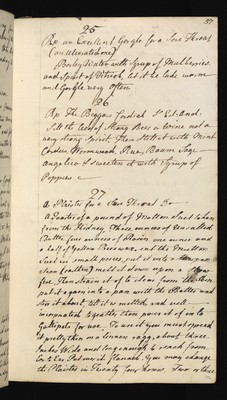 37
25
Rx an Excellent Gargle for a Sore Throat
(an ulcerated one)
Barley Water with Syrup of Mulberries
and Spirit of Vitriol, let it be luke warm
and Gargle very often
26
Rx The Beggars Cordial
Still the Lees of Strong Beer or Wine not a
very strong Spirit, then Still it with Mint
Carduus Wormwood, Rue, Baum Sage
Angelica & sweeten it with Syrup of
Poppies
27
A Plaister for a Sore Throat
A Quarter of a pound of Mutton Suet taken
from the Kidney, Three ounces of Unsalted
Butter, four ounces of Rosin one ounce and
a half of yellow Bees wax, cut the Mutton
Suet in small pieces, put it into a
melt it down upon a
fire, Then strain it of & clean
put it again into a pan with the Butter and
stir it about, till it is melted and well
incorporated together then pour it of in to
Gallipots for use. To use it you must spread
it pretty thin on a linnen ragg, about three
Inches Wide and long enough to reach from
Ear to Ear. Put over it flannel. You may change
the Plaister in Twenty four hours. Two or three